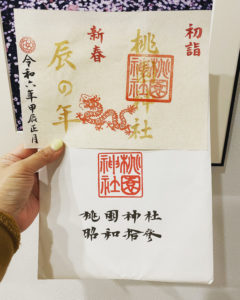 初詣
桃園神社
桃園
神社
新春
辰の年
令和六年甲辰正月
桃園
神社
桃園神社
昭和拾參